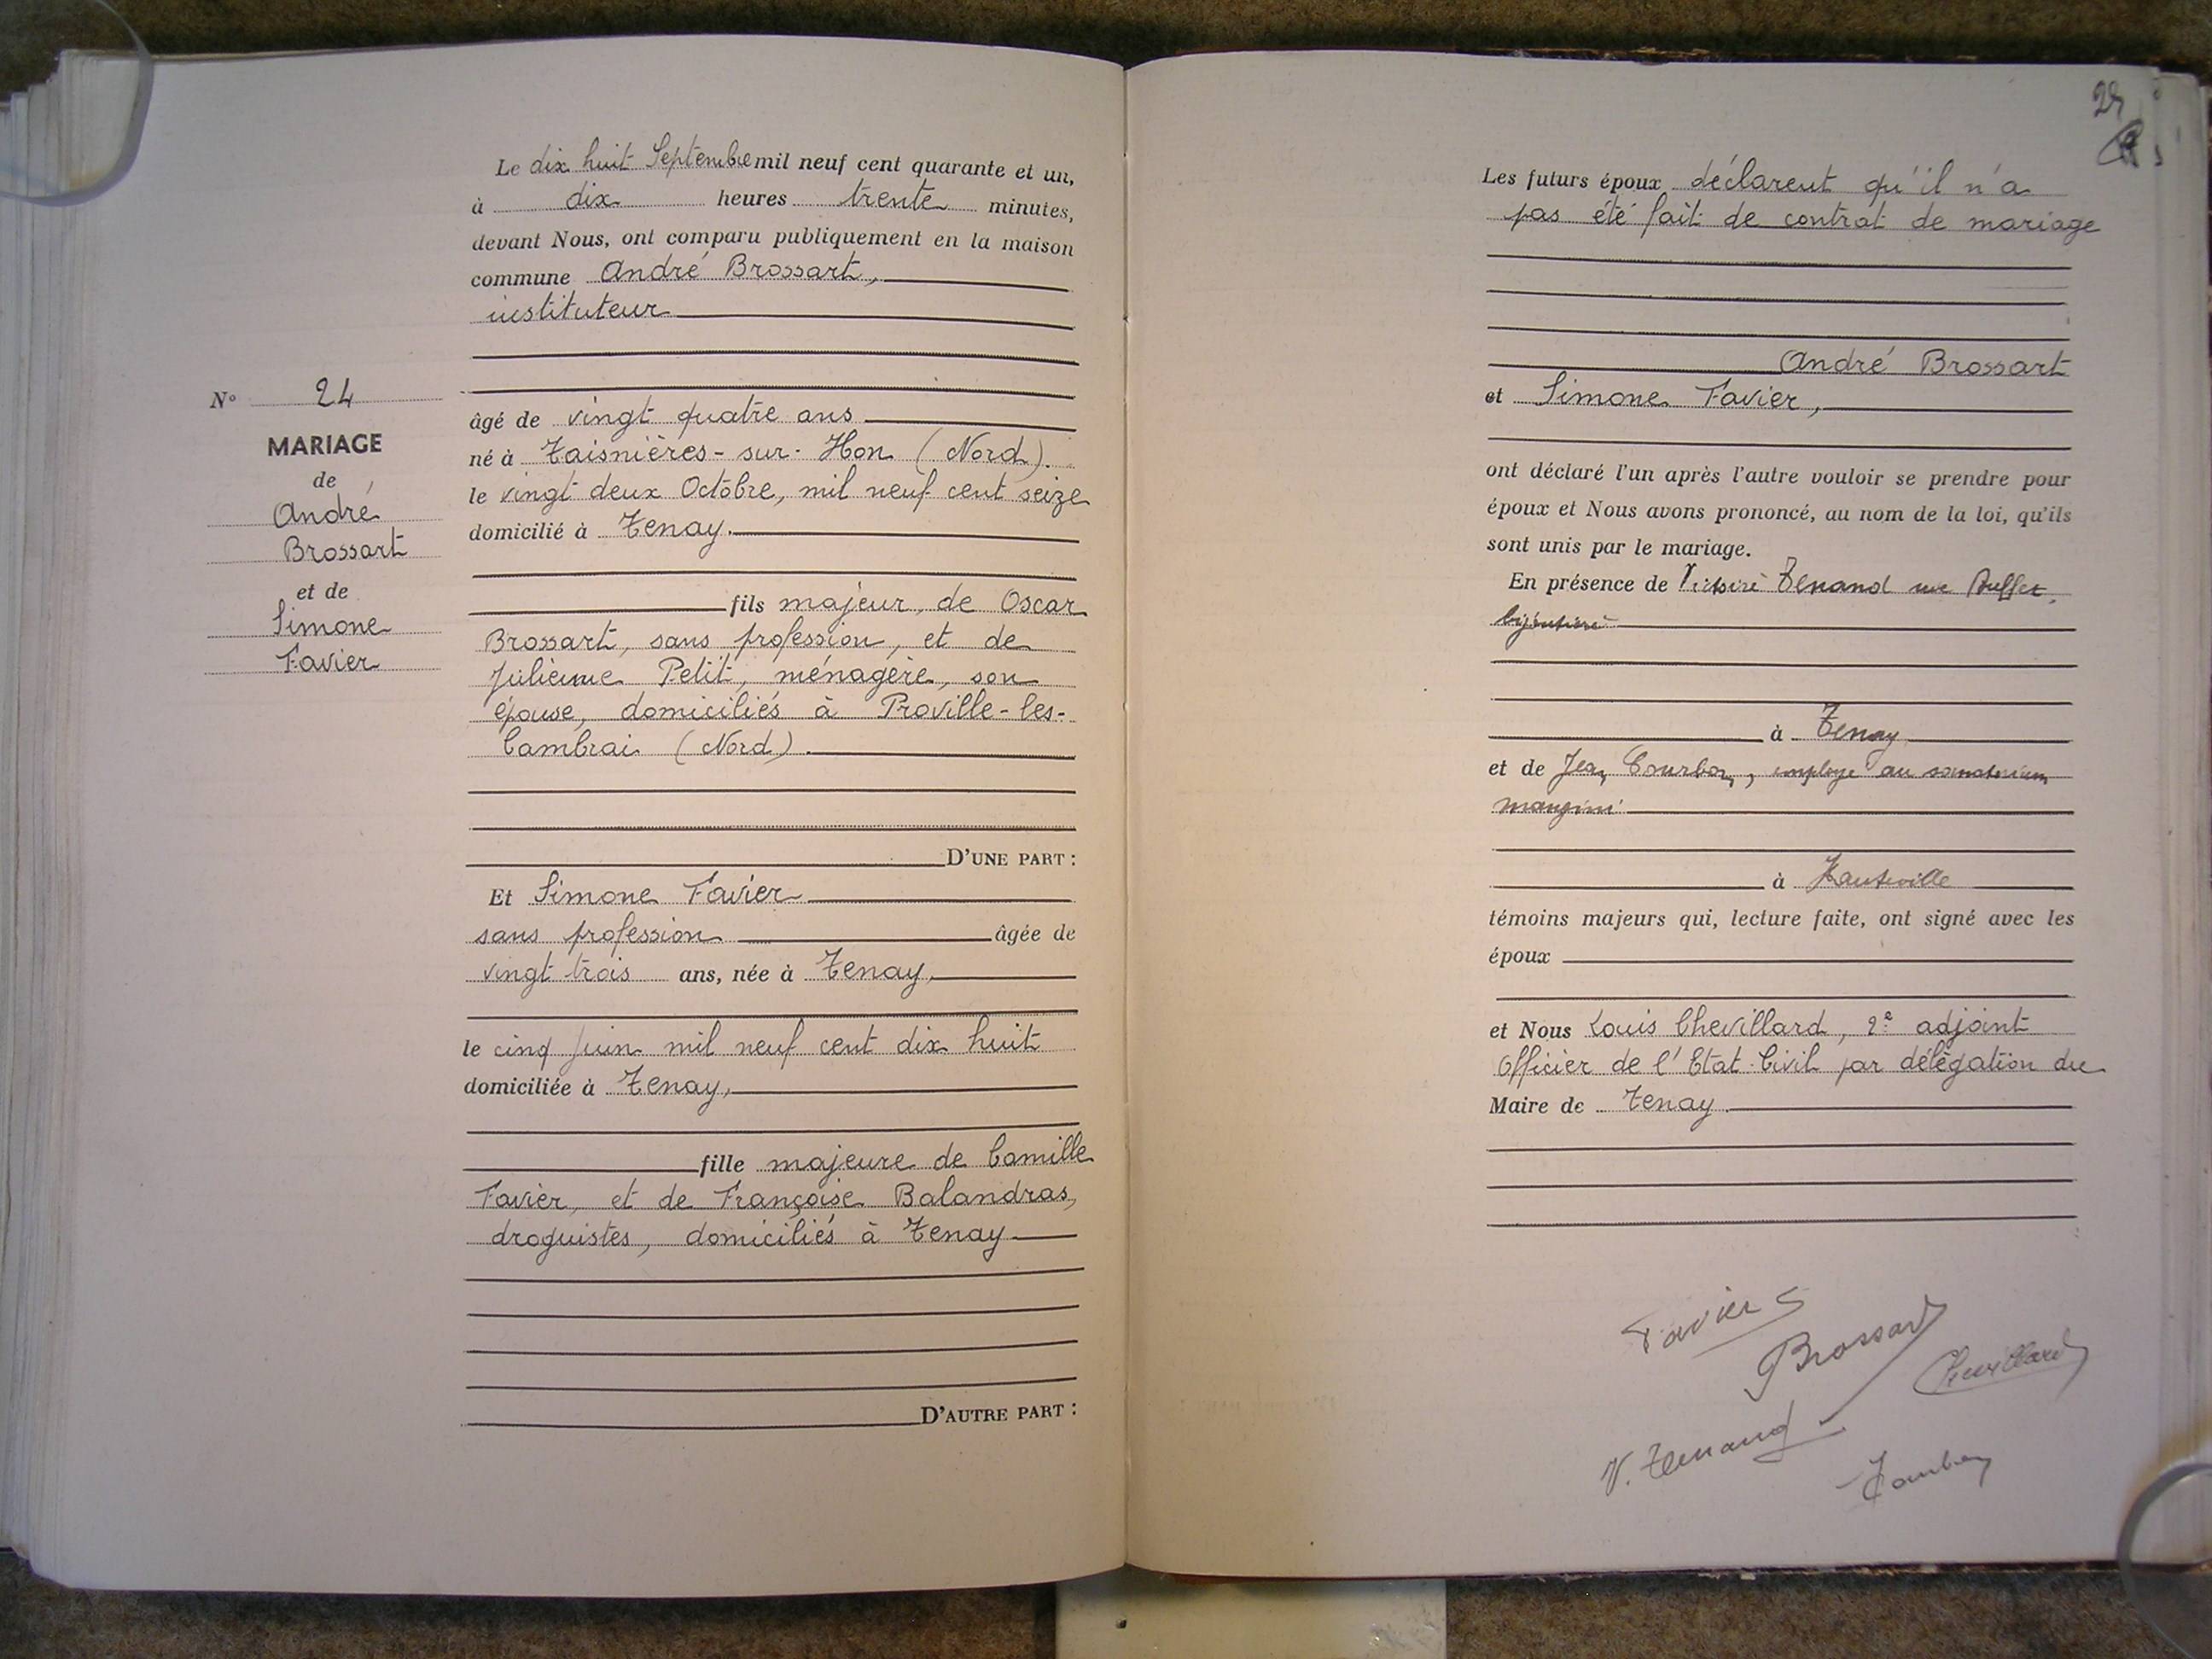 Le dix huit Septembre mil neuf cent quarante et un,
à dix heures trente minutes,
devant Nous, ont comparu publiquement en la maison
commune André Brossart,
instituteur
âgé de vingt quatre ans
né à Taisnières-sur-Hon (Nord).
le vingt deux Octobre, mil neuf cent seize
domicilié à Tenay.
fils majeur, de Oscar
Brossart, sans profession, et de
Julienne Petit, ménagère, son
épouse, domiciliés à Proville-les-
Cambrai (Nord).
D'UNE PART :
Et Simone Favier
sans profession âgée de
vingt trois ans, née à Tenay,
le cinq Juin mil neuf cent dix huit
domiciliée à Tenay,
fille majeure de Camille
Favier, et de Françoise Balandras,
droguistes, domiciliés à Tenay
D'AUTRE PART :
N° 24
MARIAGE
de
André
Brossart
et de
Simone
Favier
Les futurs époux déclarent qu'il n'a
pas été fait de contrat de mariage
André Brossart
et Simone Favier,
ont déclaré l'un après l'autre vouloir se prendre pour
époux et Nous avons prononcé, au nom de la loi, qu'ils
sont unis par le mariage.
En présence de Tenand
à Tenay
et de Jean employé au sanatorium
mangini
à Hauteville
témoins majeurs qui, lecture faite, ont signé avec les
époux
et Nous Louis Chevillard, 2e adjoint
Officier de l'Etat-Civil par délégation du
Maire de Tenay.
Favier S
Brossart
Chevillard
V. Tenand